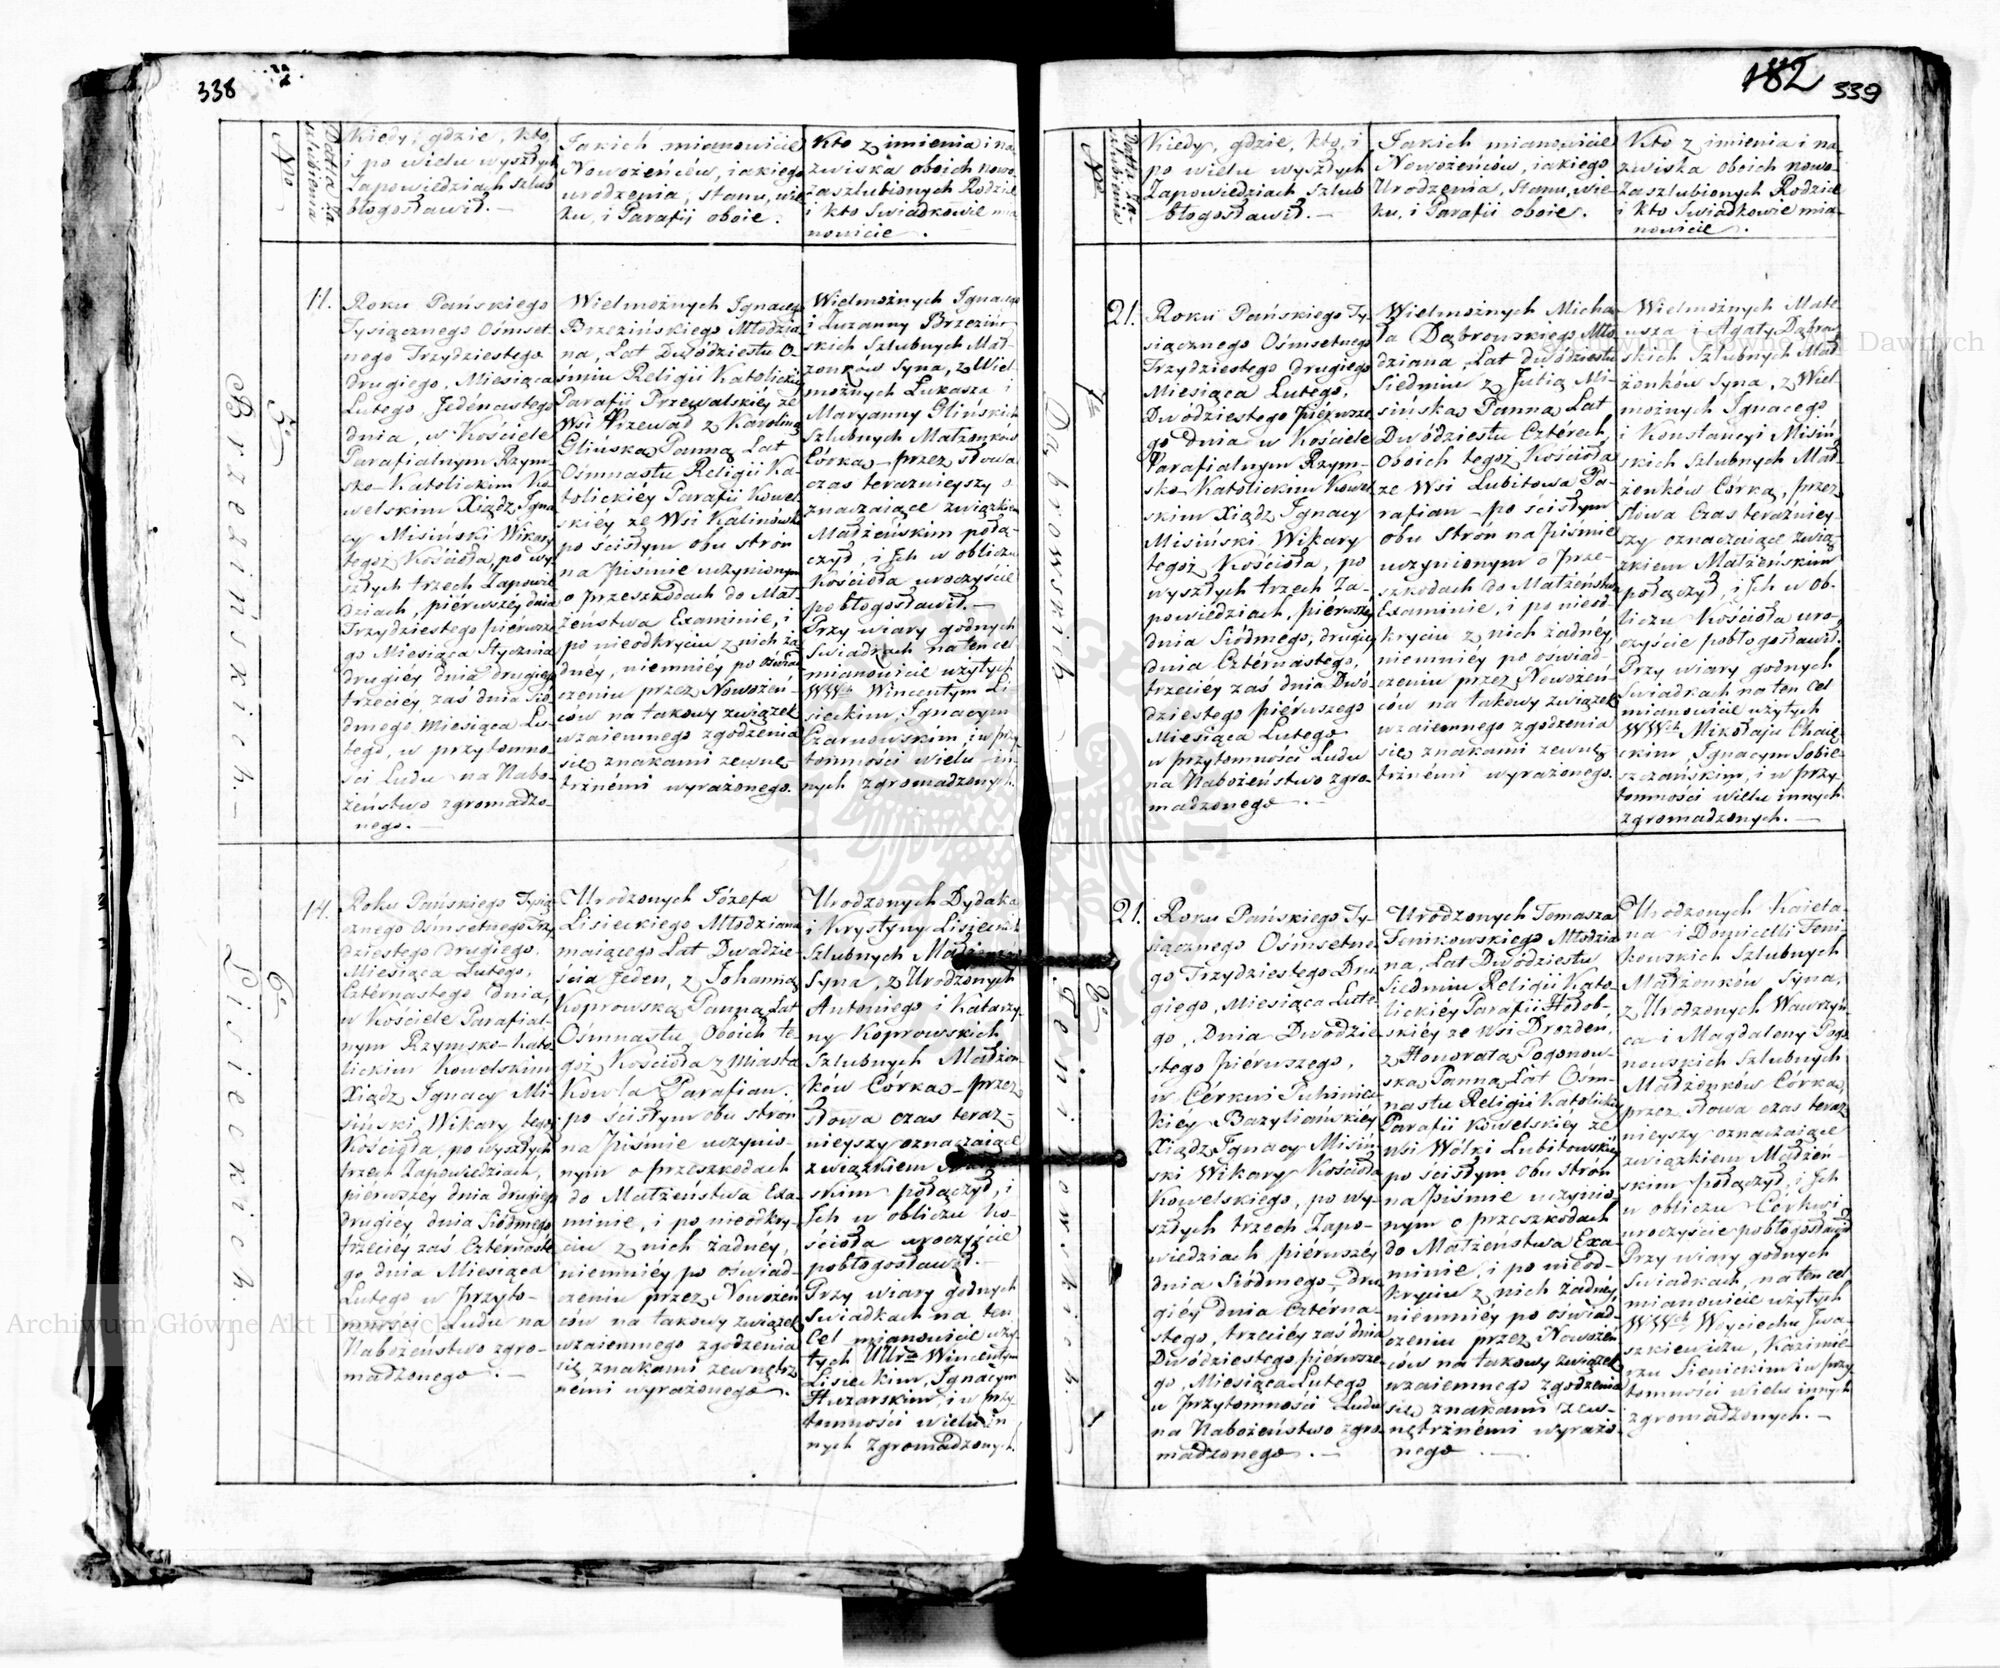 338
No
Datta Za
szlubienia
Kiedy, gdzie, kto,
i po wielu wyszłych
Zapowiedziach szlub
błogosławił. —
Jakich mianowicie
Nowożeńców, iakiego
urodzenia, stanu, wie
ku, i Parafii oboie.
Kto z imienia i na
zwiska oboich nowo
zaszlubionych Rodzice
i kto Swiadkowie mia
nowicie.
5.
Brzezińskich. —
11.
Roku Pańskiego
Tysiącznego Ośmset
nego Trzydziestego
drugiego, Miesiąca
Lutego Jedénastego
dnia, w Kościele
Parafialnym Rzym-
sko-Katolickim Ko
welskim Xiądz Igna
cy Misiński Wikary
tegoż Kościoła, po wy
szłych trzech Zapowie
dziach, piérwszéy dnia
Trzydziestego piérwsze
go Miesiąca Stycznia
drugiéy dnia drugiego
trzeciéy, zaś dnia Sió
dmego Miesiąca Lu-
tego, w przytomno-
ści Ludu na Nabo-
żeństwo zgromadzo-
nego. —
Wielmożnych Ignacego
Brzezińskiego Młodzia
na, Lat Dwódziestu O-
śmiu Religii Katolickiéy
Parafii Przewalskiéy ze
Wsi Przewał z Karoliną
Glińską Panną Lat
Ośmnastu Religii Ka-
tolickiéy Parafii Kowel
skiéy ze Wsi Kalinówki
po ścisłym obu strón
na piśmie uczynionym
o przeszkodach do Mał-
żeństwa Examinie, i
po nieodkryciu z nich ża
dnéy, niemniéy po oświad
czeniu przez Nowożeń-
ców na takowy związek
wzaiemnego zgodzenia
się znakami zewnę-
trznémi wyrażonego.
Wielmożnych Ignacego
i Zuzanny Brzeziń-
skich Szlubnych Mał-
żonków Syna, z Wiel
możnych Łukasza i
Maryanny Glińskich
Szlubnych Małżonków
Córką — przez słowa
czas teraznieyszy o
znaczaiące związkiem
Małżeńskim połą-
czył, i Ich w obliczu
Kościoła uroczyście
pobłogosławił. —
Przy wiary godnych
Swiadkach na ten cel
mianowicie użytych
WWch Wincentym Li-
sieckim, Ignacym
Czarnowskim, i w przy
tomności wielu in-
nych zgromadzonych.
6.
Lisieckich.
14.
Roku Pańskiego Tysią
cznego Ośmsetnego Trzy
dziestego drugiego,
Miesiąca Lutego,
Cztérnastego dnia,
w Kościele Parafial-
nym Rzymsko-Kato
lickim Kowelskim
Xiądz Ignacy Mi-
siński, Wikary tegoż
Kościoła, po wyszłych
trzech Zapowiedziach,
piérwszéy dnia drugiego
drugiéy dnia Siódmego
trzeciéy zaś Cztérnaste
go dnia Miesiąca
Lutego w przyto-
mności Ludu na
Nabożeństwo zgro-
madzonego. —
Urodzonych Józefa
Lisieckiego Młodziana
maiącego Lat Dwadzie-
ścia Jeden, z Johanną
Koprowską Panną Lat
Ośmnastu Oboich te-
goż Kościoła z Miasta
Kowla Parafian.
po ścisłym obu stron
na piśmie uczynio-
nym o przeszkodach
do Małżeństwa Exa-
minie, i po nieodkry-
ciu z nich żadnéy,
niemniéy po oświad-
czeniu przez Nowożeń
ców na takowy związek
wzaiemnego zgodzenia
się, znakami zewnętrz
némi wyrażonego.
Urodzonych Dydaka
i Krystyny Lisieckich
Szlubnych Małżonków
Syna, z Urodzonych
Antoniego i Katarzy-
ny Koprowskich
Szlubnych Małżon-
ków Córką — przez
słowa czas teraz-
nieyszy oznaczaiące
związkiem
skim połączył, i
Ich w obliczu Ko-
ścioła uroczyście
pobłogosławił. —
Przy wiary godnych
Swiadkach na ten
cel mianowicie uży-
tych Wincentym
Lisieckim, Ignacym
Huzarskim, i w przy
tomności wielu in
nych zgromadzonych.
182 339
No
Datta Za
szlubienia
Kiedy, gdzie, kto, i
po wielu wyszłych
Zapowiedziach Szlub
błogosławił. —
Jakich mianowicie
Nowożeńców, iakiego
Urodzenia, Stanu, wie
ku, i Parafii oboie.
Kto z imienia i na-
zwiska oboich nowo-
zaszlubionych Rodzice
i kto Swiadkowie mia-
nowicie.
7.
Dąbrowskich. —
21.
Roku Pańskiego Ty-
siącznego Ośmsetnego
Trzydziestego drugiego
Miesiąca Lutego,
Dwódziestego piérwsze
go dnia w Kościele
Parafialnym Rzym-
sko-Katolickim Kowel
skim Xiądz Ignacy
Misiński Wikary
tegoż Kościoła, po
wyszłych trzech Za-
powiedziach, piérwszéy
dnia Siódmego, drugiéy
dnia Cztérnastego,
trzeciéy zaś dnia Dwó-
dziestego piérwszego
Miesiąca Lutego
w przytomności Ludu
na Nabożeństwo zgro-
madzonego. —
Wielmożnych Micha-
ła Dąbrowskiego Mło
dziana, Lat dwódziestu
Siedmiu z Julią Mi-
sińską Panną Lat
Dwódziestu Cztérech,
Oboich tegoż Kościoła
ze Wsi Lubitowa Pa-
rafian — po ścisłym
obu Stron na piśmie
uczynionym o prze-
szkodach do Małżeństwa
Examinie, i po nieod-
kryciu z nich żadnéy,
niemniéy po oświad-
czeniu przez Nowożeń-
ców na takowy związek
wzaiemnego zgodzenia
się znakami zewnę-
trznémi wyrażonego.
Wielmożnych Mate-
usza i Agaty Dąbrow
skich Szlubnych Mał
żonków Syna, z Wiel-
możnych Ignacego
i Konstancyi Misiń
skich Szlubnych Mał-
żonków Córką, przez
słowa Czas teraźniey-
szy oznaczaiące zwią-
zkiem Małżeńskim
połączył, i Ich w ob-
liczu Kościoła uro-
czyście pobłogosławił.
Przy wiary godnych
Swiadkach na ten cel
mianowicie użytych
WWch Mikołaju
ckim, Ignacym Sobie-
szczańskim, i w przy-
tomności wielu innych
zgromadzonych. —
8.
Tenikowskich.
21.
Roku Pańskiego Ty-
siącznego Ośmsetne-
go Trzydziestego Dru
giego, Miesiąca Lute-
go, Dnia Dwódzie-
stego piérwszego,
w Cérkwi
kiéy Bazyliańskiéy
Xiądz Ignacy Misiń-
ski Wikary Kościoła
Kowelskiego, po wy-
szłych trzech Zapo-
wiedziach piérwszéy
dnia Siódmego, dru-
giéy dnia Cztérna-
stego, trzeciéy zaś dnia
Dwódziestego piérwsze-
go, Miesiąca Lutego
w przytomności Ludu
na Nabożeństwo zgro
madzonego. —
Urodzonych Tomasza
Tenikowskiego Młodzia
na, Lat Dwódziestu
Siedmiu Religii Kato-
lickiéy Parafii Hołob-
skiéy ze Wsi Drozden,
z Honoratą Pogonow-
ską Panną Lat Ośm-
nastu Religii Katolickiéy
Parafii Kowelskiéy ze
Wsi Wólki Lubitowskiéy
po ścisłym obu strón
na piśmie uczynio-
nym o przeszkodach
do Małżeństwa Exa-
minie, i po nieod-
kryciu z nich żadnéy,
niemniéy po oświad-
czeniu przez Nowożeń
ców na takowy związek
wzaiemnego zgodzenia
się znakami zew-
nętrznémi wyrażo-
nego —
Urodzonych Kaieta-
na i Domicelli Teni-
kowskich Szlubnych
Małżonków Syna,
z Urodzonych Wawrzyń-
ca i Magdaleny Pogo
nowskich Szlubnych
Małżonków Córką,
przez słowa czas teraź
nieyszy oznaczaiące
związkiem Małżeń-
skim połączył, i Ich
w obliczu Cérkwi
uroczyście pobłogosławił
Przy wiary godnych
Swiadkach, na ten cel
mianowicie użytych
WWch Woyciechu Iwa-
szkiewiczu, Kazimie-
rzu Sienickim i w przy
tomności wielu innych
zgromadzonych. —
Archiwum Główne Akt Dawnych
Archiwum Główne Akt Dawnych